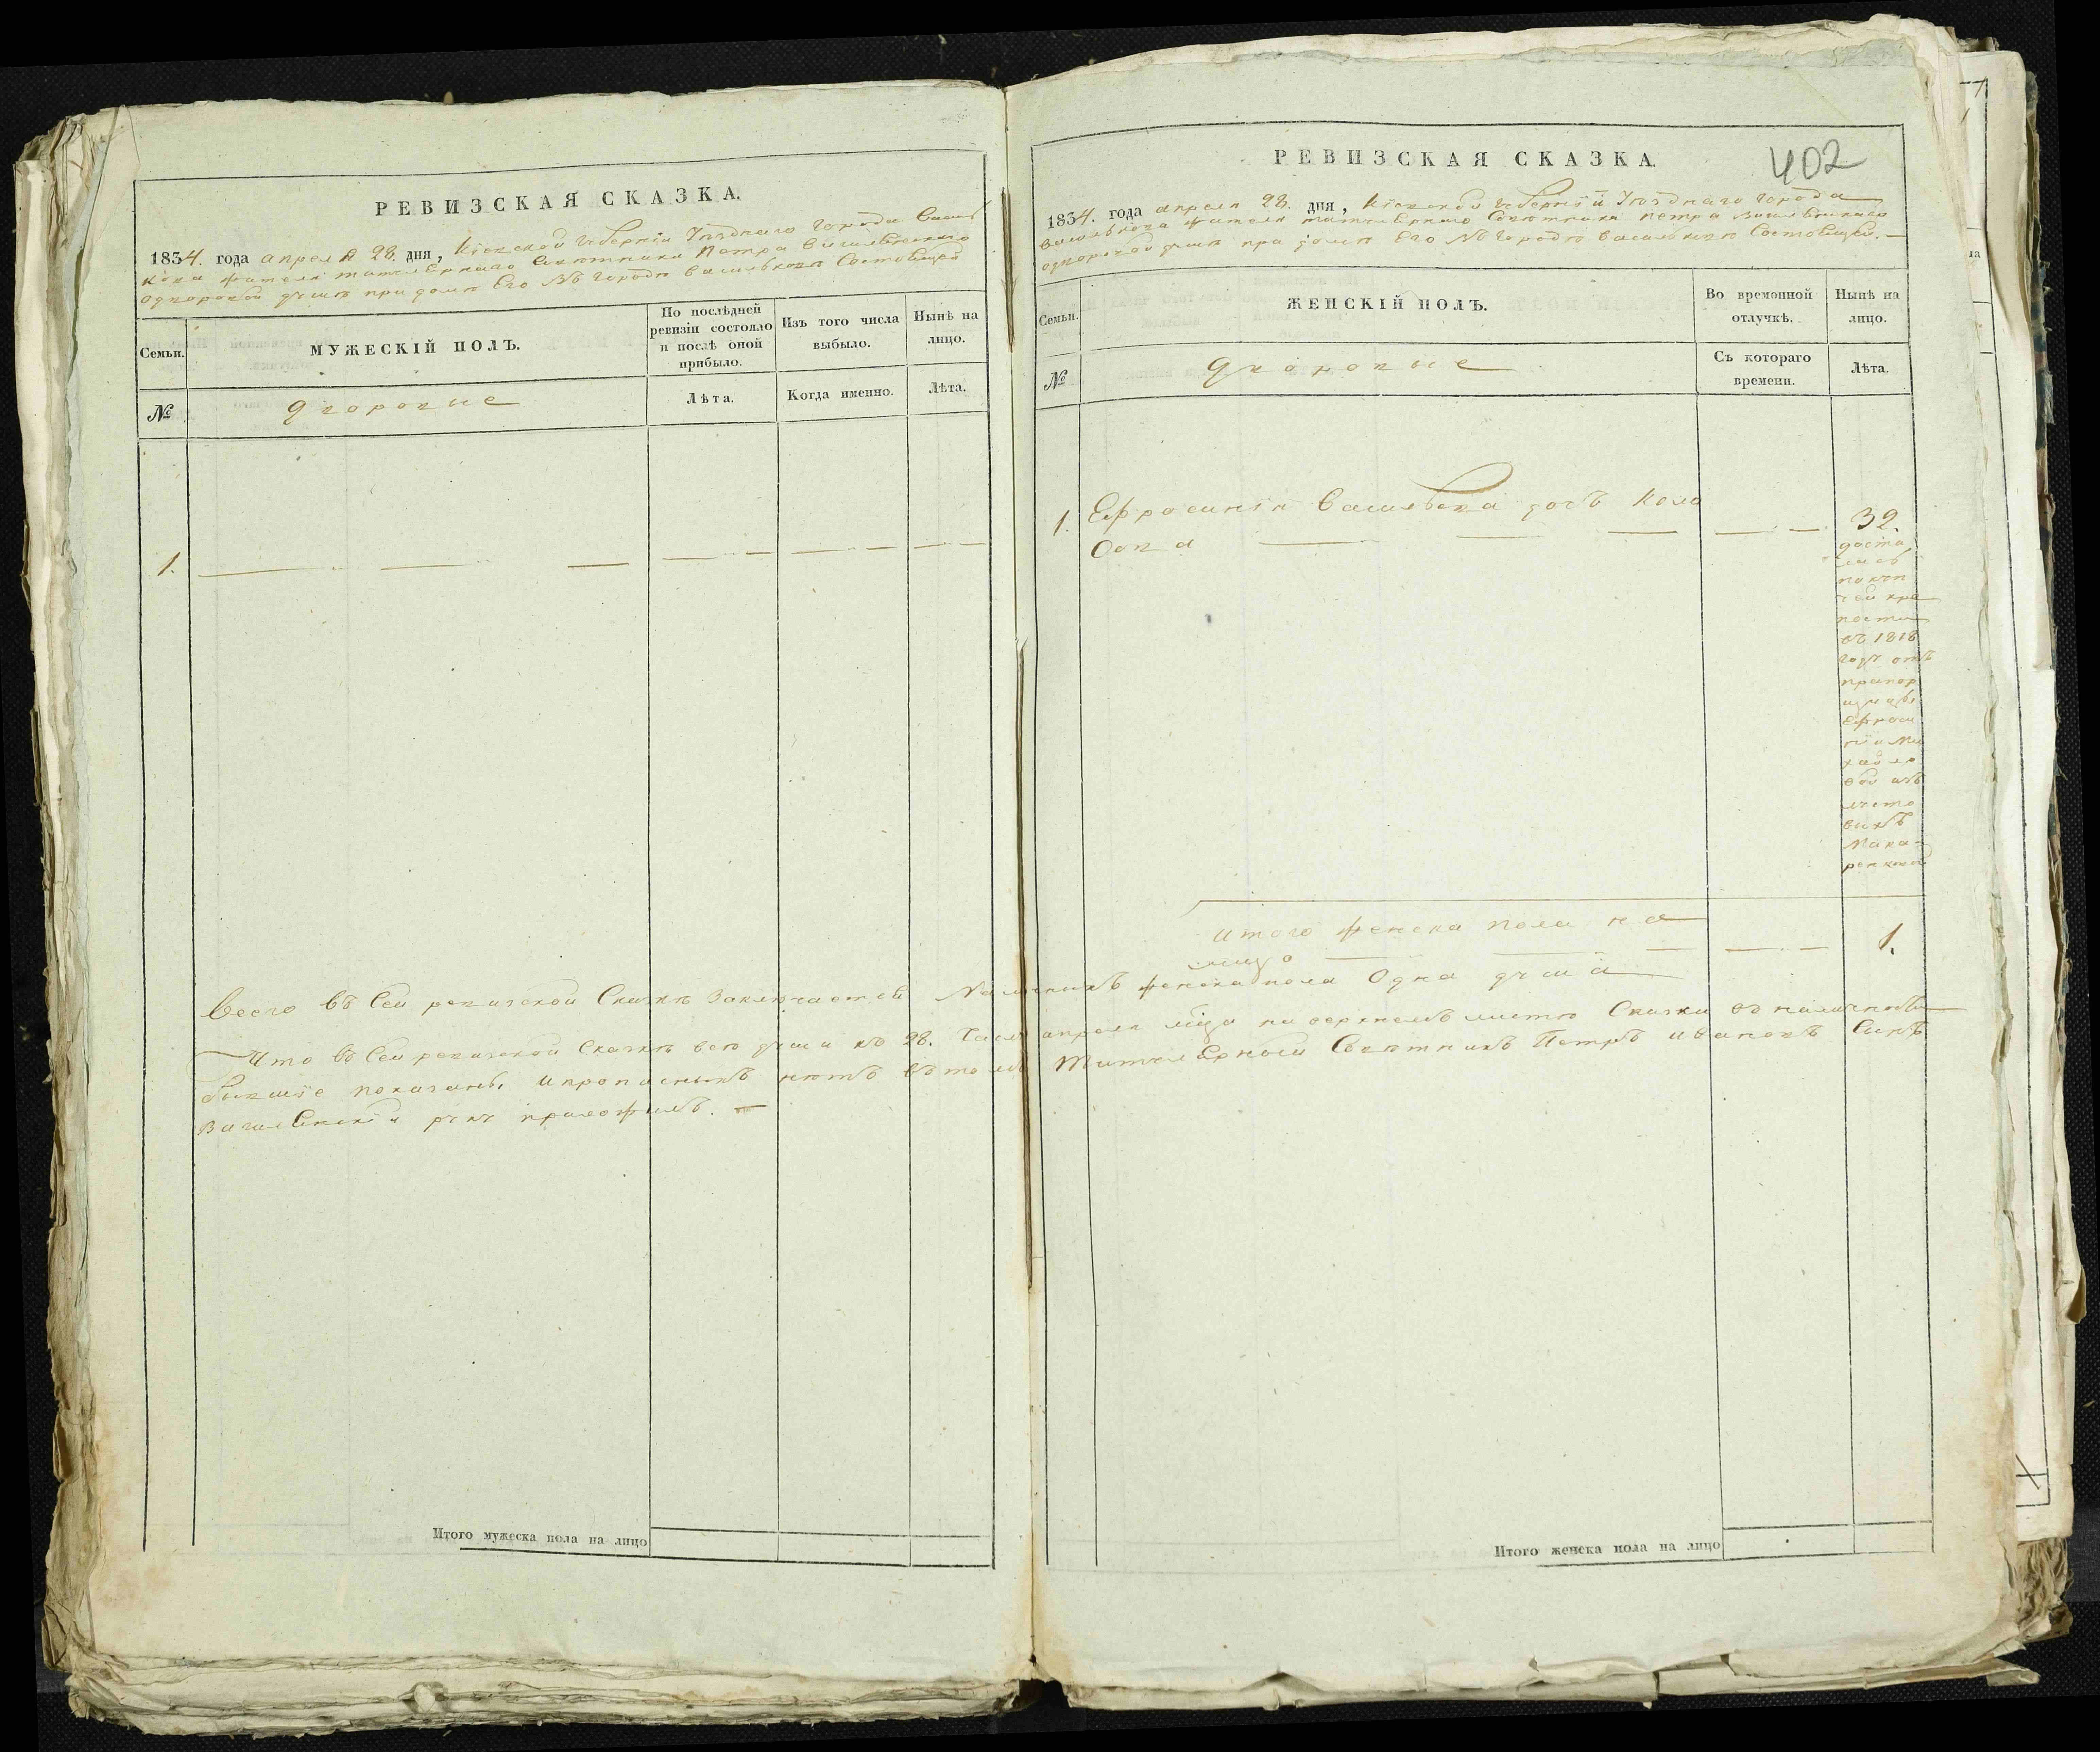 РЕВИЗСКАЯ СКАЗКА.
1834. года апреля 28. дня, Кіевской губерніи Уѣзднаго города Василь
кова жителя титулярнаго Советника Петра
дворовой душѣ при домѣ Его Въ городѣ Василькове Состоящей
Семьи.
МУЖЕСКІЙ ПОЛЪ.
По послѣдней
ревизіи состояло
и послѣ оной
прибыло.
Изъ того числа
выбыло.
Нынѣ на
лицо.
№
дворовые
Лѣта.
Когда именно.
Лѣта.
1.
Итого мужеска пола на лицо
402
РЕВИЗСКАЯ СКАЗКА.
1834. года апреля 28. дня, Кіевской губерніи Уѣзднаго города
Василькова жителя титулярнаго Советника Петра
дворовой душѣ при домѣ Его Въ городѣ Василькове Состоящей.
Семьи.
ЖЕНСКІЙ ПОЛЪ.
Во временной
отлучкѣ.
Нынѣ на
лицо.
№
дворовые
Съ котораго
времени.
Лѣта.
1. Ефросинія Васильева дочь 32.
доста
лась
по куп
чей кре
пости
въ 1818
году отъ
прапор
щицы
Ефроси
ніи Ми
хайло
вой
Мака
Итого женска пола на
лицо 1.
Всего въ Сей ревизской Сказкѣ Заключается Наличныхъ женска пола Одна душа
Что въ Сей ревизской Сказкѣ все души къ 28. Числу апреля мѣца на верхнемъ листѣ Сказки въ наличности
бывшіе показаны и прописныхъ нѣтъ въ томъ Титулярный Советникъ Петръ Ивановъ Сынъ
руку приложилъ.
Итого женска пола на лицо